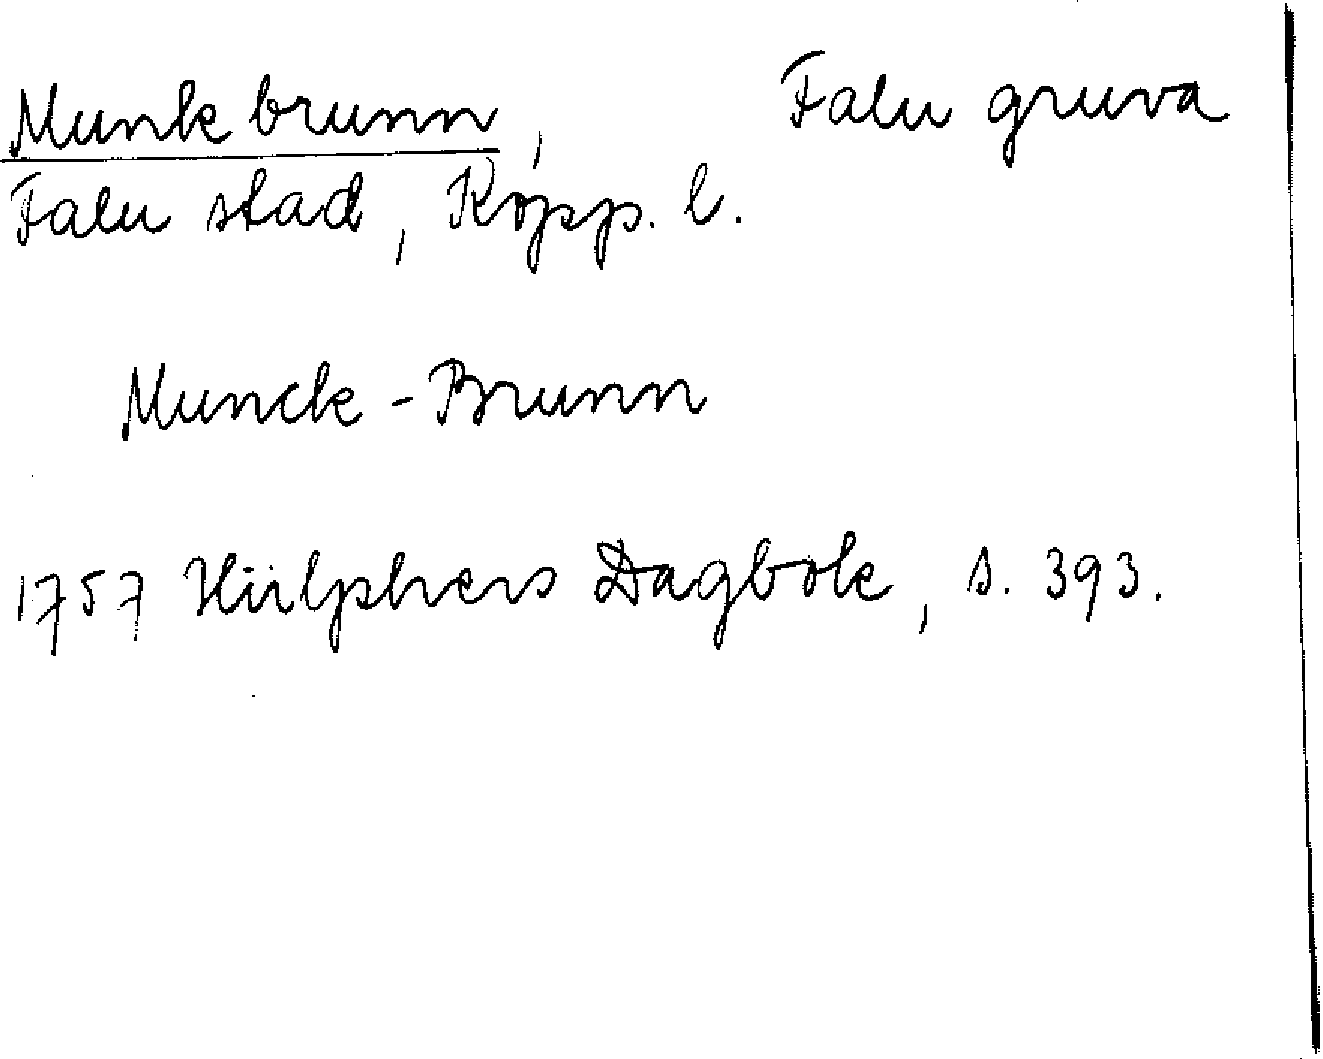 Munkbrunn, Falu gruva
Falu stad, Kopp. l.
Munck-Brunn
1757 Hülphers Dagbok, s. 393.